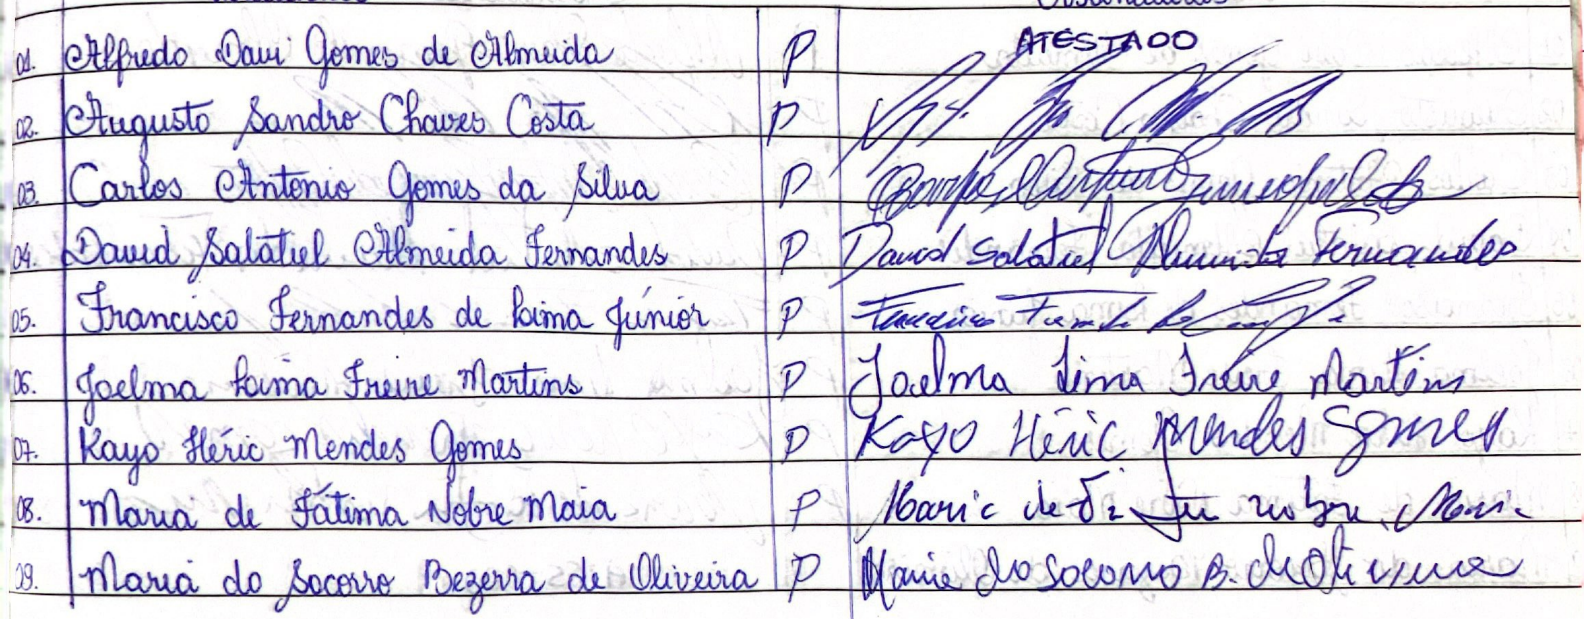 01. Alfredo Davi Gomes de Almeida P ATESTADO
02. Augusto Sandro Chaves Costa P
03. Carlos Antonio Gomes da Silva P
04. David Salatiel Almeida Fernandes P David Salatiel Almeida Fernandes
05. Francisco Fernandes de Lima Júnior P
06. Joelma Lima Freire Martins P Joelma Lima Freire Martins
07. Kayo Héric Mendes Gomes P Kayo Héric Mendes Gomes
08. Maria de Fátima Nobre Maia P Maria de
09. Maria do Socorro Bezerra de Oliveira P Maria do Socorro B. de Oliveira